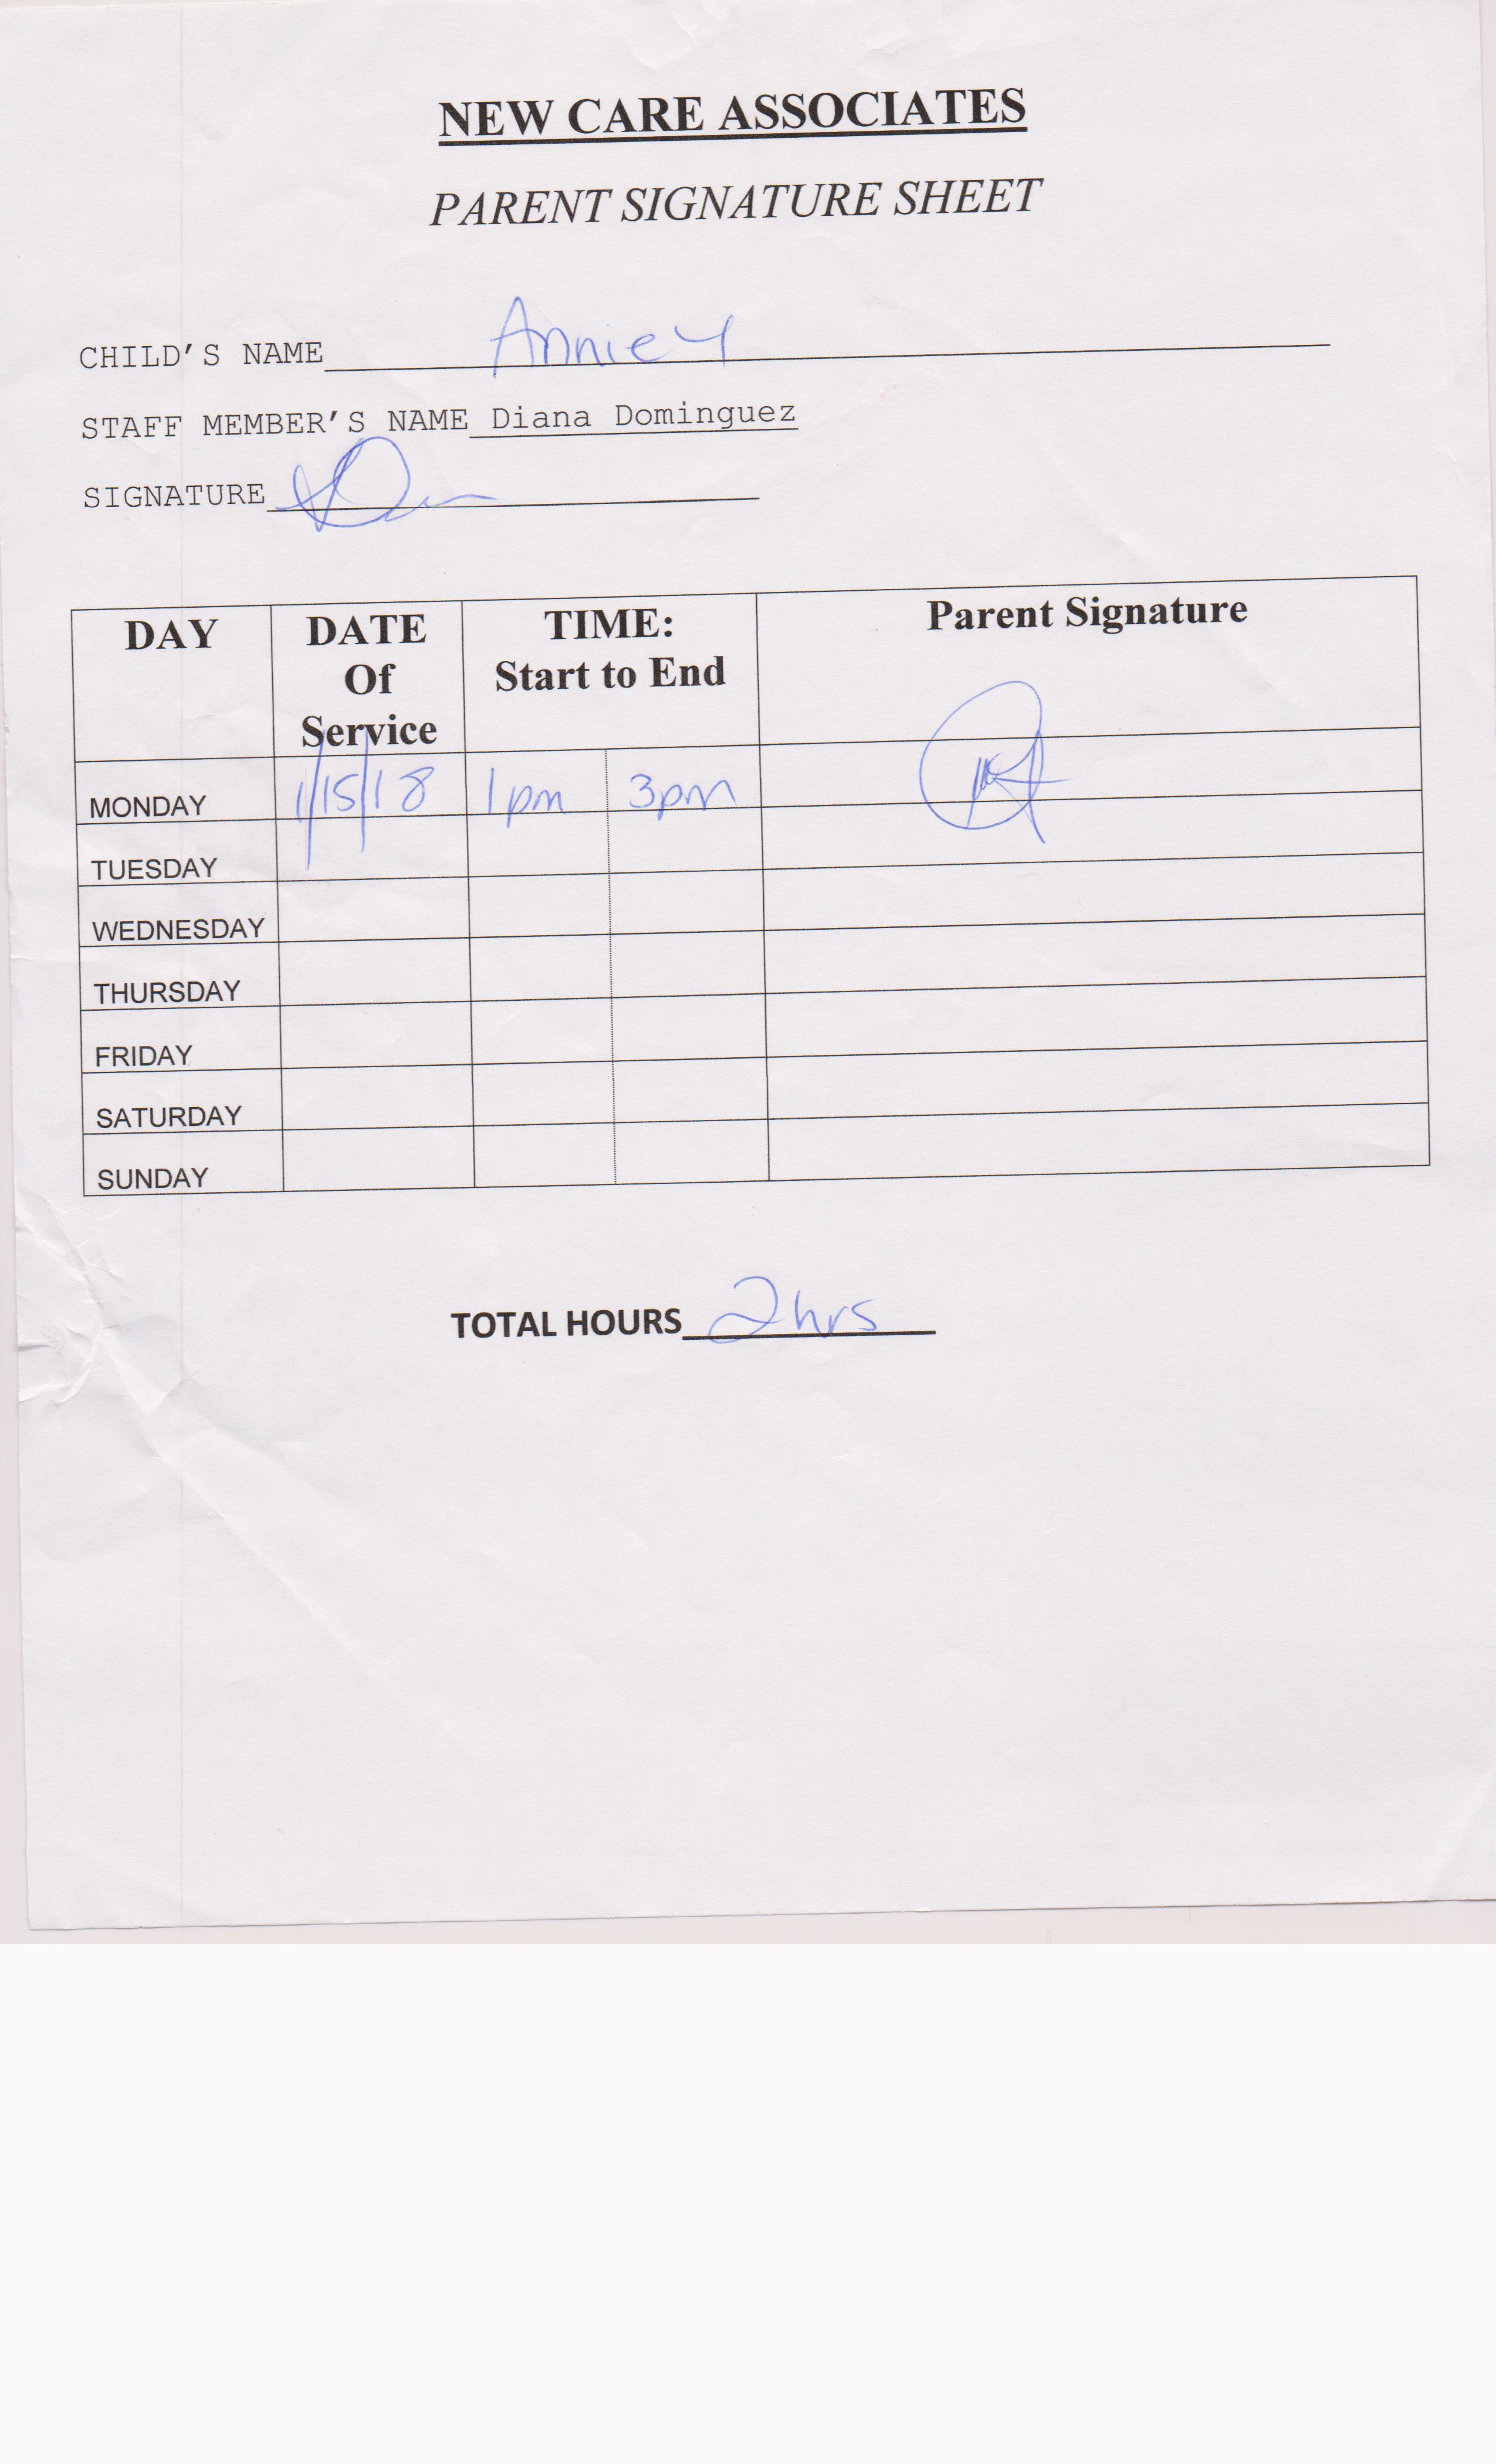 NEW CARE ASSOCIATES
PARENT SIGNATURE SHEET
CHILD'S NAME Annie Y
STAFF MEMBER'S NAME Diana Dominguez
SIGNATURE
DAY DATE Of Service TIME: Start to End Parent Signature
MONDAY 1/15/18 1pm 3pm
TUESDAY
WEDNESDAY
THURSDAY
FRIDAY
SATURDAY
SUNDAY
TOTAL HOURS 2hrs